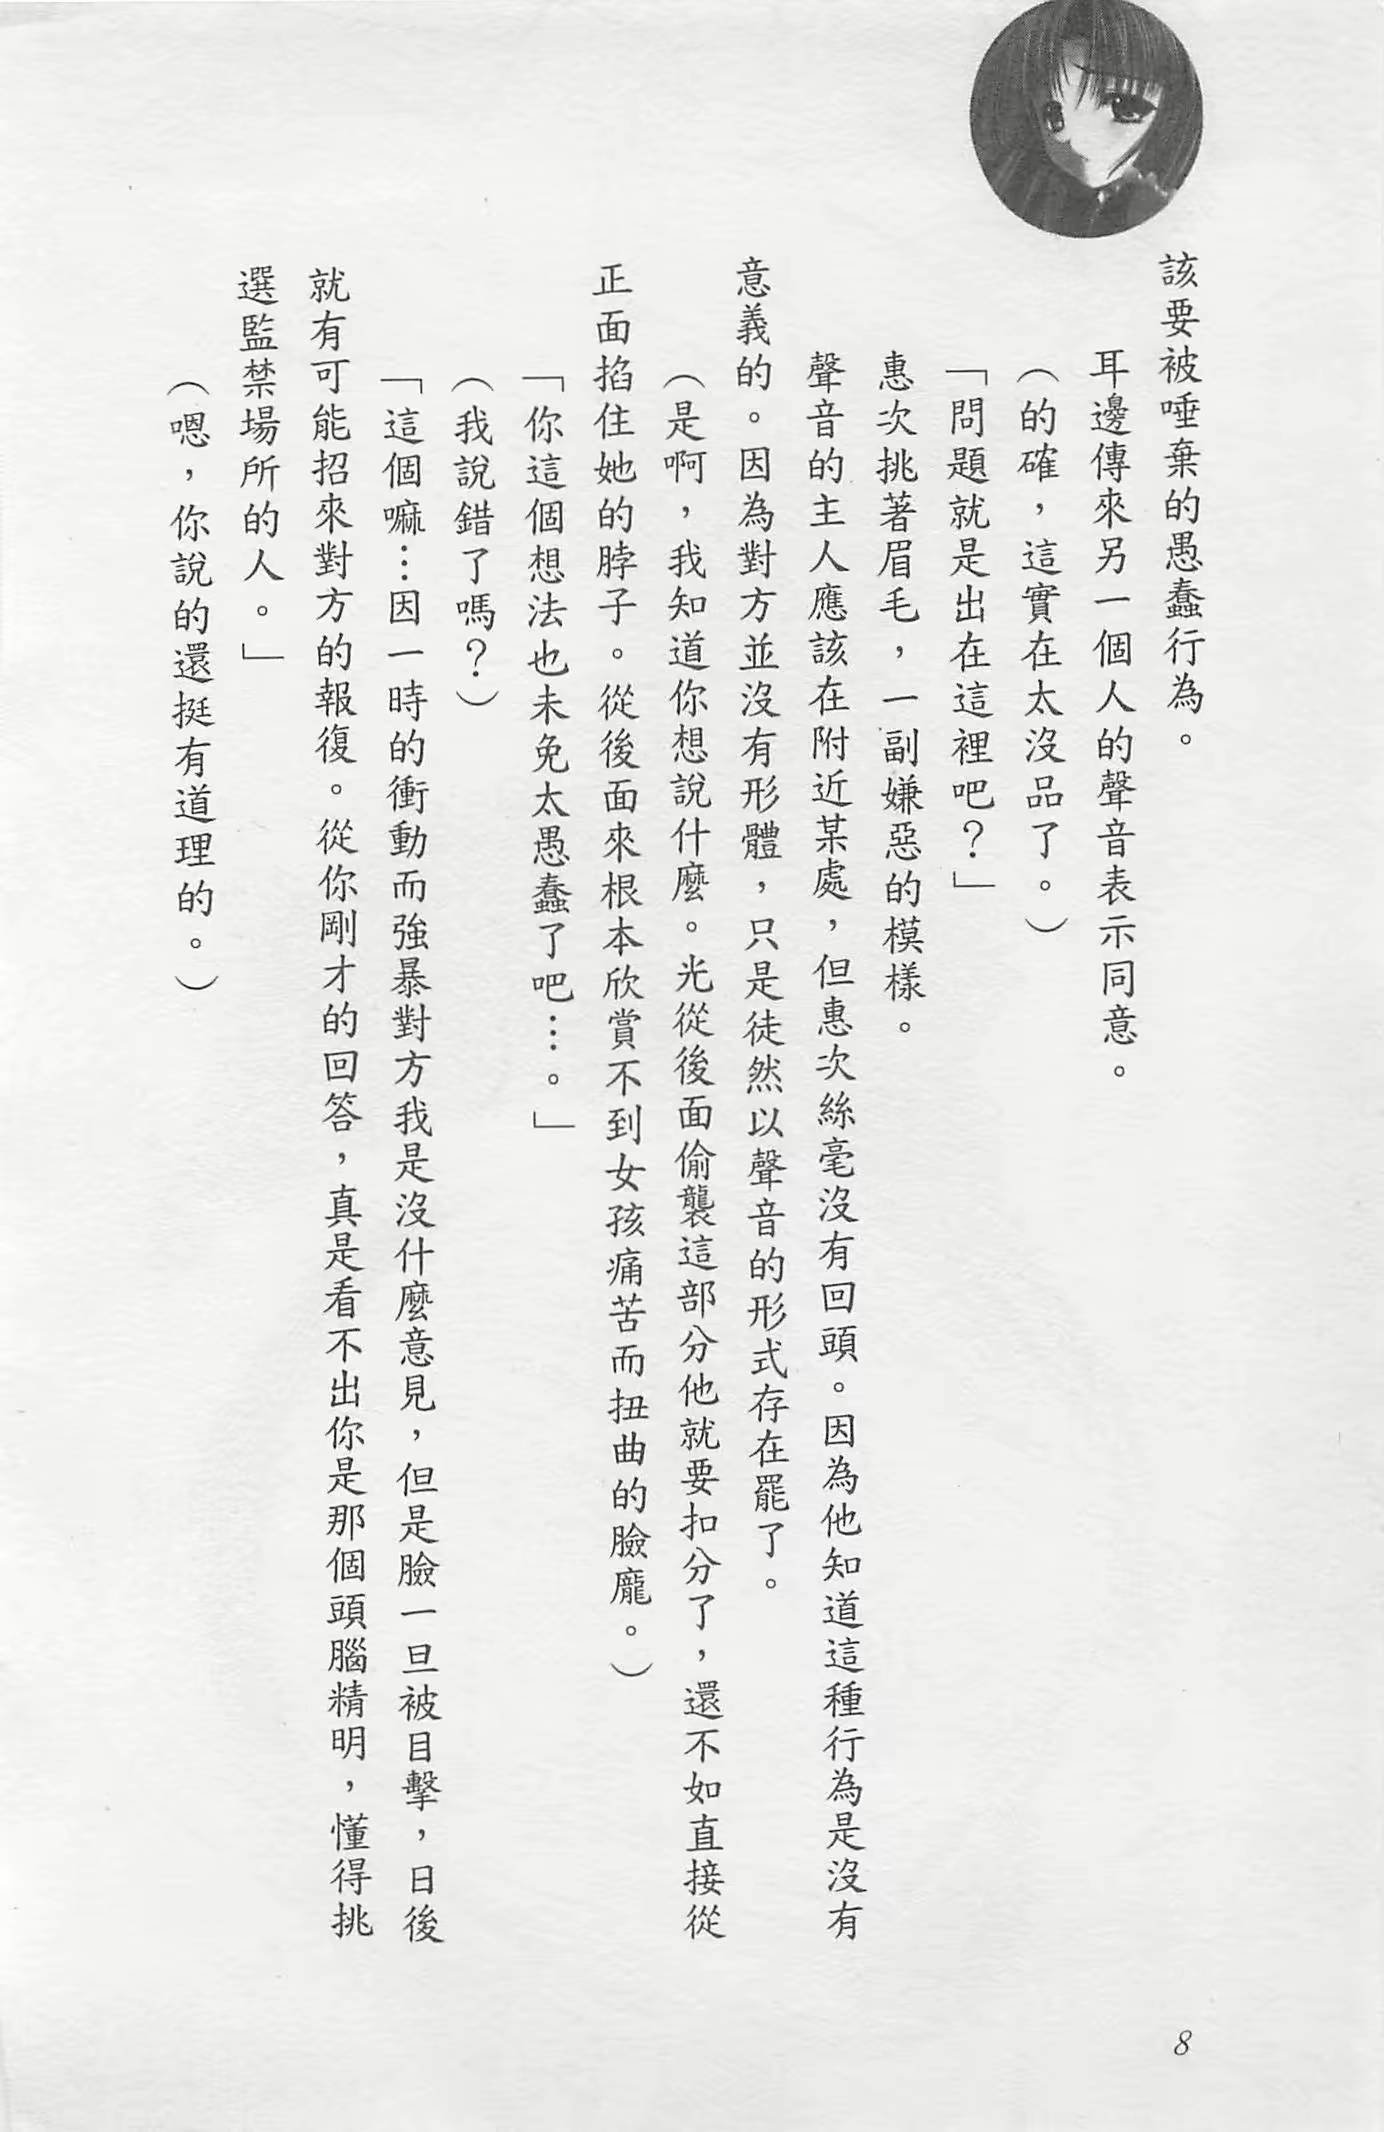 該要被唾棄的愚蠢行為。
耳邊傳來另一個人的聲音表示同意。
（的確，這實在太沒品了。）
「問題就是出在這裡吧？」
惠次挑著眉毛，一副嫌惡的模樣。
聲音的主人應該在附近某處，但惠次絲毫沒有回頭。因為他知道這種行為是沒有
意義的。因為對方並沒有形體，只是徒然以聲音的形式存在罷了。
（是啊，我知道你想說什麼。光從後面偷襲這部分他就要扣分了，還不如直接從
正面掐住她的脖子。從後面來根本欣賞不到女孩痛苦而扭曲的臉龐。）
「你這個想法也未免太愚蠢了吧…。」
（我說錯了嗎？）
「這個嘛…因一時的衝動而強暴對方我是沒什麼意見，但是臉一旦被目擊，日後
就有可能招來對方的報復。從你剛才的回答，真是看不出你是那個頭腦精明，懂得挑
選監禁場所的人。」
（嗯，你說的還挺有道理的。）
8